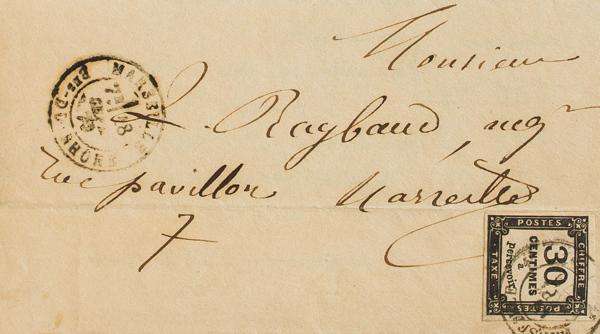 Monsieur
Raybaud, mgt
rue pavillon Marseille
7
MARSEILLE
BES-DU-RHONE
POSTES
CHIFFRE
TAXE
30
CENTIMES
à
percevoir